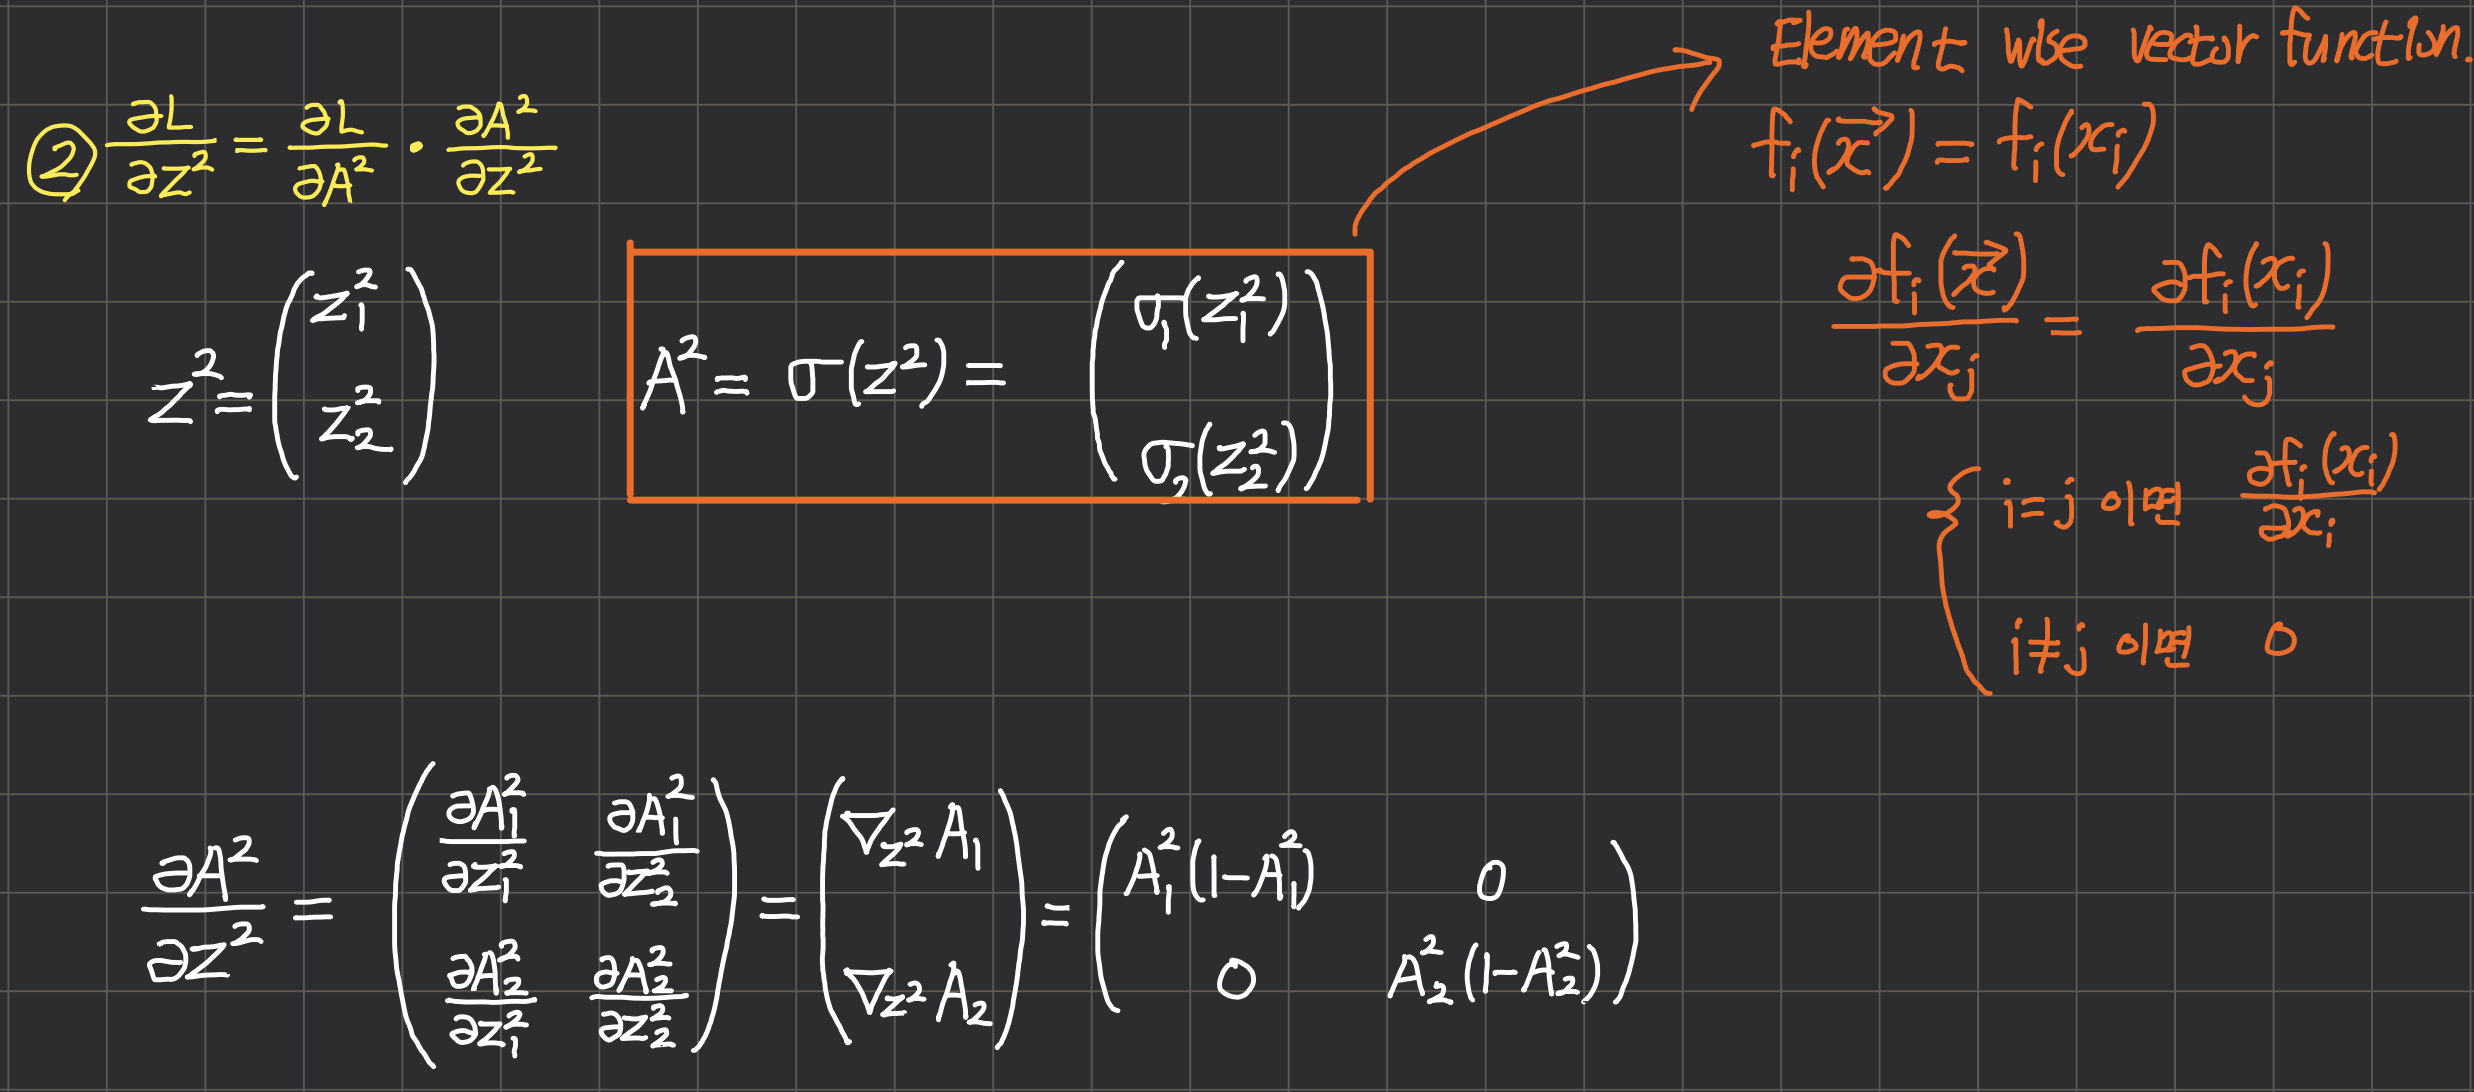 ② ∂L/∂Z² = ∂L/∂A² · ∂A²/∂Z²
Z² = (Z₁² Z₂²)
A² = σ(Z²) = (σ₁(Z₁²) σ₂(Z₂²))
Element wise vector function.
fᵢ(x⃗) = fᵢ(xᵢ)
∂fᵢ(x⃗)/∂xⱼ = ∂fᵢ(xᵢ)/∂xⱼ
{ i=j 이면 ∂fᵢ(xᵢ)/∂xᵢ
i≠j 이면 0
∂A²/∂Z² = (∂A₁²/∂Z₁² ∂A₁²/∂Z₂² ∂A₂²/∂Z₁² ∂A₂²/∂Z₂²) = (∇z² A₁ ∇z² A₂) = (A₁²(1-A₁²) 0 0 A₂²(1-A₂²))